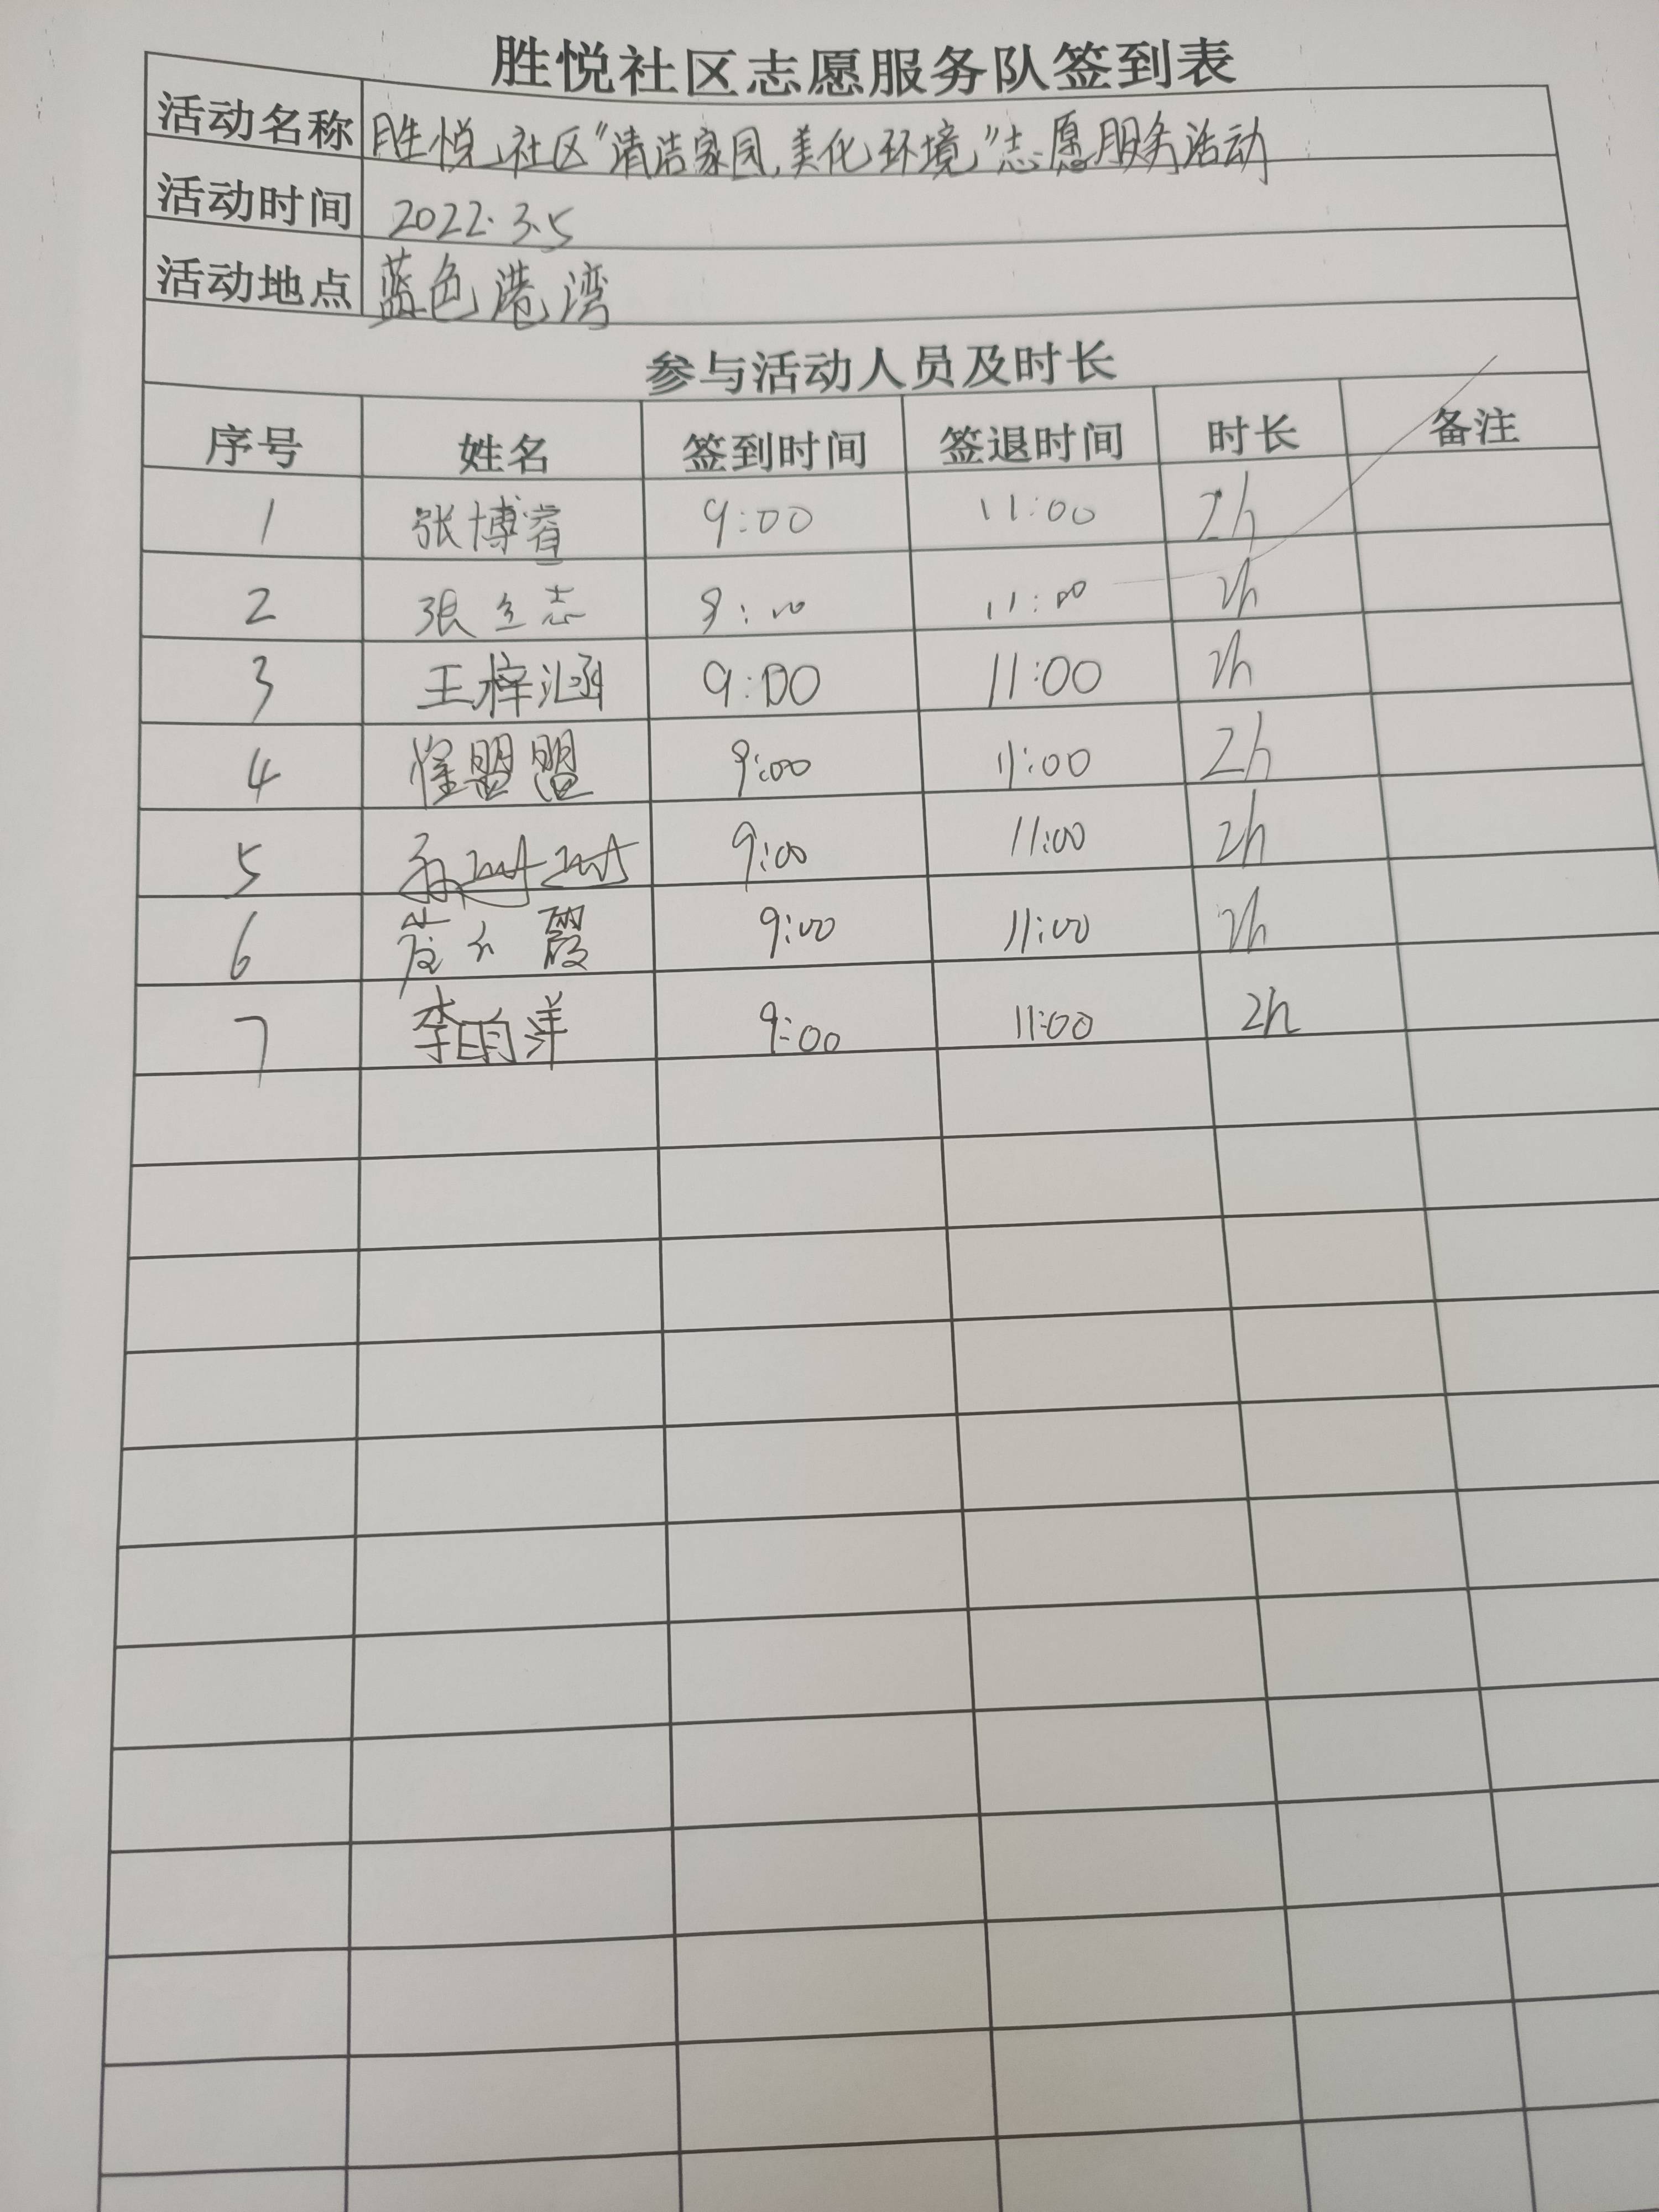 胜悦社区志愿服务队签到表
活动名称 胜悦社区“清洁家园,美化环境”志愿服务活动
活动时间 2022.3.5
活动地点 蓝色港湾
参与活动人员及时长
序号 姓名 签到时间 签退时间 时长 备注
1 张博睿 9:00 11:00 2h
2 张立志 9:00 11:00 2h
3 王梓涵 9:00 11:00 2h
4 崔盟盟 9:00 11:00 2h
5 9:00 11:00 2h
6 霞 9:00 11:00 2h
7 李明洋 9:00 11:00 2h